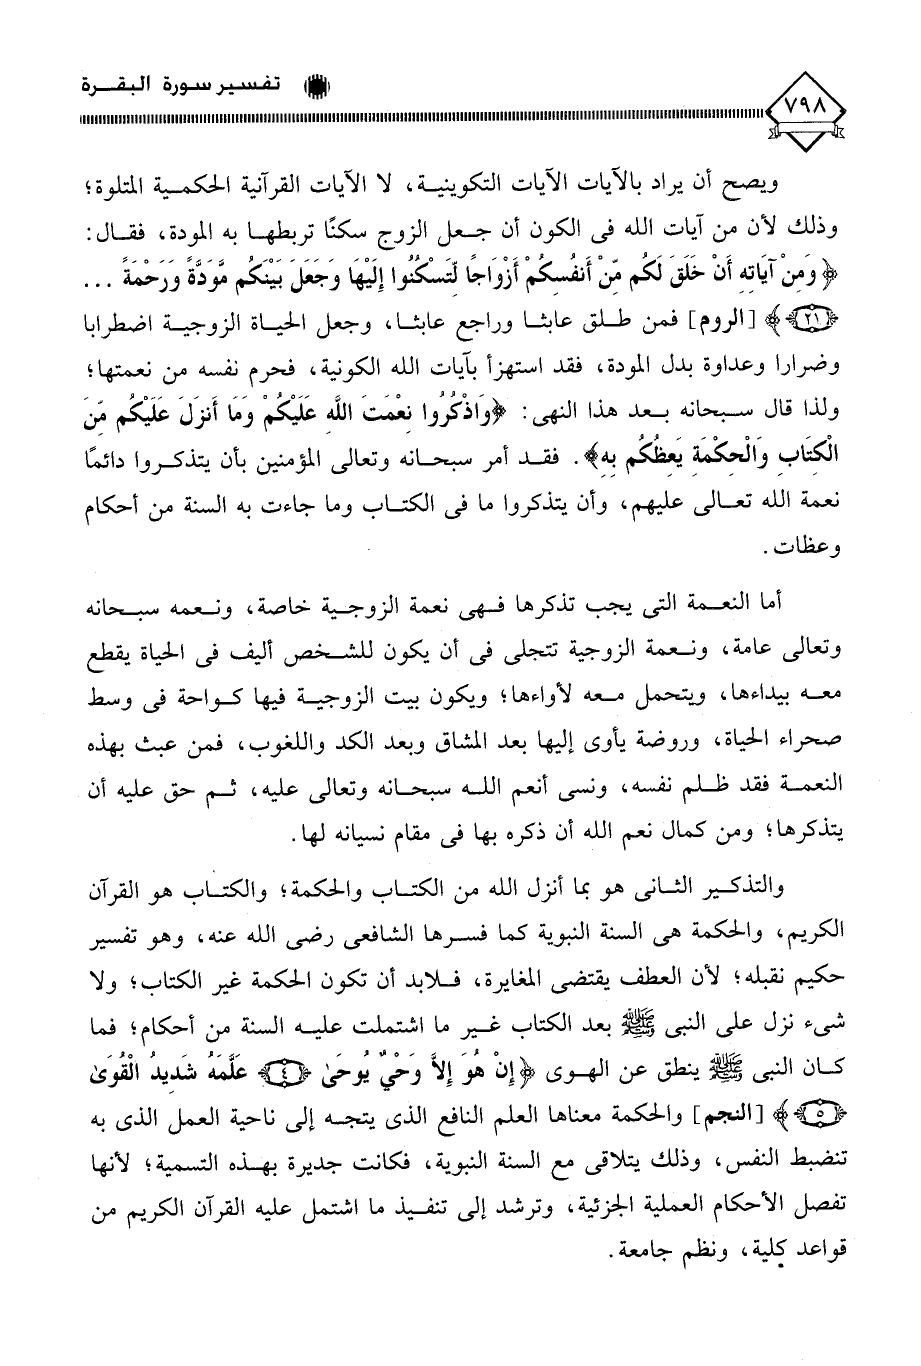 ٧٩٨
تفسير سورة البقرة
ويصح أن يراد بالآيات الآيات التكوينية، لا الآيات القرآنية الحكمية المتلوة؛
وذلك لأن من آيات الله فى الكون أن جعل الزوج سكنًا تربطها به المودة، فقال:
﴿وَمِنْ آيَاتِهِ أَنْ خَلَقَ لَكُم مِّنْ أَنفُسِكُمْ أَزْوَاجًا لِّتَسْكُنُوا إِلَيْهَا وَجَعَلَ بَيْنَكُم مَّوَدَّةً وَرَحْمَةً ...
﴿٢١﴾﴾ [الروم] فمن طلق عابثا وراجع عابثا، وجعل الحياة الزوجية اضطرابا
وضرارا وعداوة بدل المودة، فقد استهزأ بآيات الله الكونية، فحرم نفسه من نعمتها؛
ولذا قال سبحانه بعد هذا النهى: ﴿وَاذْكُرُوا نِعْمَتَ اللَّهِ عَلَيْكُمْ وَمَا أَنزَلَ عَلَيْكُم مِّنَ
الْكِتَابِ وَالْحِكْمَةِ يَعِظُكُم بِهِ﴾. فقد أمر سبحانه وتعالى المؤمنين بأن يتذكروا دائمًا
نعمة الله تعالى عليهم، وأن يتذكروا ما فى الكتاب وما جاءت به السنة من أحكام
وعظات.
أما النعمة التى يجب تذكرها فهى نعمة الزوجية خاصة، ونعمه سبحانه
وتعالى عامة، ونعمة الزوجية تتجلى فى أن يكون للشخص أليف فى الحياة يقطع
معه بيداءها، ويتحمل معه لأواءها؛ ويكون بيت الزوجية فيها كواحة فى وسط
صحراء الحياة، وروضة يأوى إليها بعد المشاق وبعد الكد واللغوب، فمن عبث بهذه
النعمة فقد ظلم نفسه، ونسى أنعم الله سبحانه وتعالى عليه، ثم حق عليه أن
يتذكرها؛ ومن كمال نعم الله أن ذكره بها فى مقام نسيانه لها.
والتذكير الثانى هو بما أنزل الله من الكتاب والحكمة؛ والكتاب هو القرآن
الكريم، والحكمة هى السنة النبوية كما فسرها الشافعى رضى الله عنه، وهو تفسير
حكيم نقبله؛ لأن العطف يقتضى المغايرة، فلابد أن تكون الحكمة غير الكتاب؛ ولا
شىء نزل على النبى ﷺ بعد الكتاب غير ما اشتملت عليه السنة من أحكام؛ فما
كان النبى ﷺ ينطق عن الهوى ﴿إِنْ هُوَ إِلاَّ وَحْيٌ يُوحَىٰ ﴿٤﴾ عَلَّمَهُ شَدِيدُ الْقُوَىٰ
﴿٥﴾﴾ [النجم] والحكمة معناها العلم النافع الذى يتجه إلى ناحية العمل الذى به
تنضبط النفس، وذلك يتلاقى مع السنة النبوية، فكانت جديرة بهذه التسمية؛ لأنها
تفصل الأحكام العملية الجزئية، وترشد إلى تنفيذ ما اشتمل عليه القرآن الكريم من
قواعد كلية، ونظم جامعة.